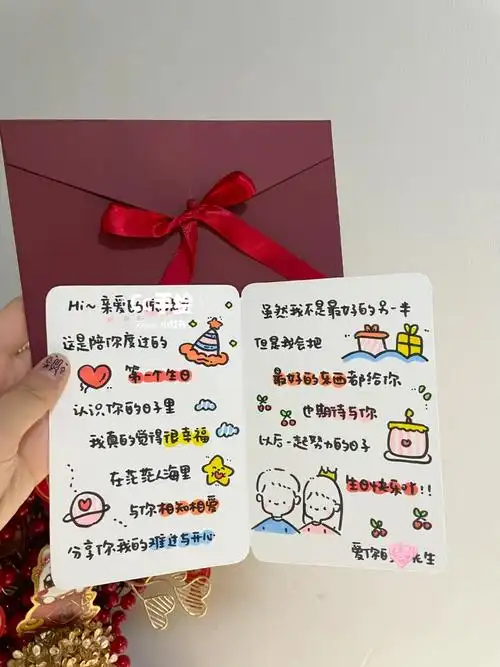 Hi~ 亲爱的
这是陪你度过的
第一个生日
认识你的日子里
我真的觉得很幸福
在茫茫人海里
与你相知相爱
分享你我的难过与开心
虽然我不是最好的另一半
但是我会把
最好的东西都给你
也期待与你
以后一起努力的日子
生日快乐吖!!
爱你的 先生